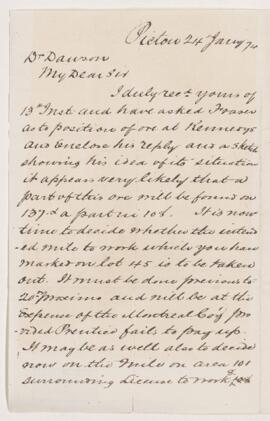 Pictou 24 Jany 74
Dr Dawson
My Dear Sir
I duly rect yours of
13th Inst and have asked Fraser
as to position of ore at Kennedys
and enclose his reply and a sketch
showing his idea of its situation
it appears very likely that a
part of this ore will be found on
137 & a part in 108. It is now
time to decide whether the
mile to work which you have
marked on lot 45 is to be taken
out. It must be done previous to
20th Proximo and will be at the
expense of the Montreal Coy pro
vided Prentice fails to pay up.
It may be as well also to decide
now on the Mile on area 101
surrounding License to work